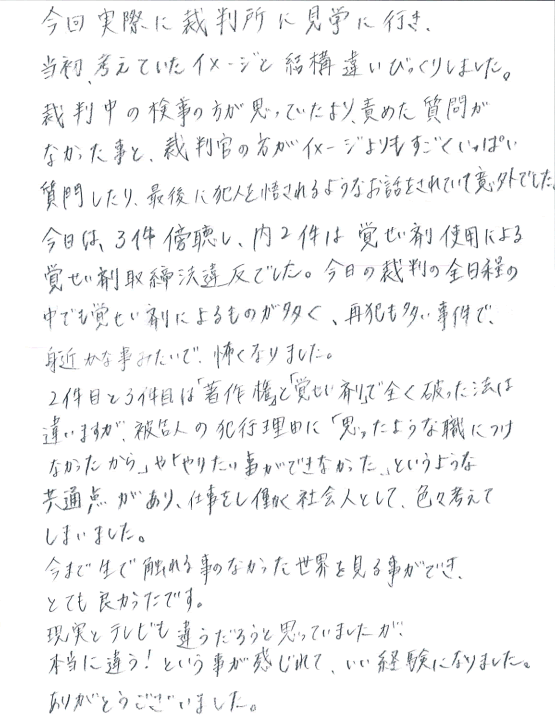 今回実際に裁判所に見学に行き、
当初、考えていたイメージと結構違いびっくりしました。
裁判中の検事の方が思っていたより、責めた質問が
なかった事と、裁判官の方がイメージよりもすごくいっぱい
質問したり、最後に犯人を悟されるようなお話をされていて意外でした。
今日は、3件傍聴し、内2件は覚せい剤使用による
覚せい剤取締法違反でした。今日の裁判の全日程の
中でも覚せい剤によるものが多く、再犯も多い事件で、
身近かな事みたいで、怖くなりました。
2件目と3件目は「著作権」と「覚せい剤」で全く破った法は
違いますが、被告人の犯行理由に「思ったような職につけ
なかったから」や「やりたい事ができなかった」というような
共通点があり、仕事をし働く社会人として、色々考えて
しまいました。
今まで生で触れる事のなかった世界を見る事ができ、
とても良かったです。
現実とテレビも違うだろうと思っていましたが、
本当に違う!という事が感じれて、いい経験になりました。
ありがとうございました。